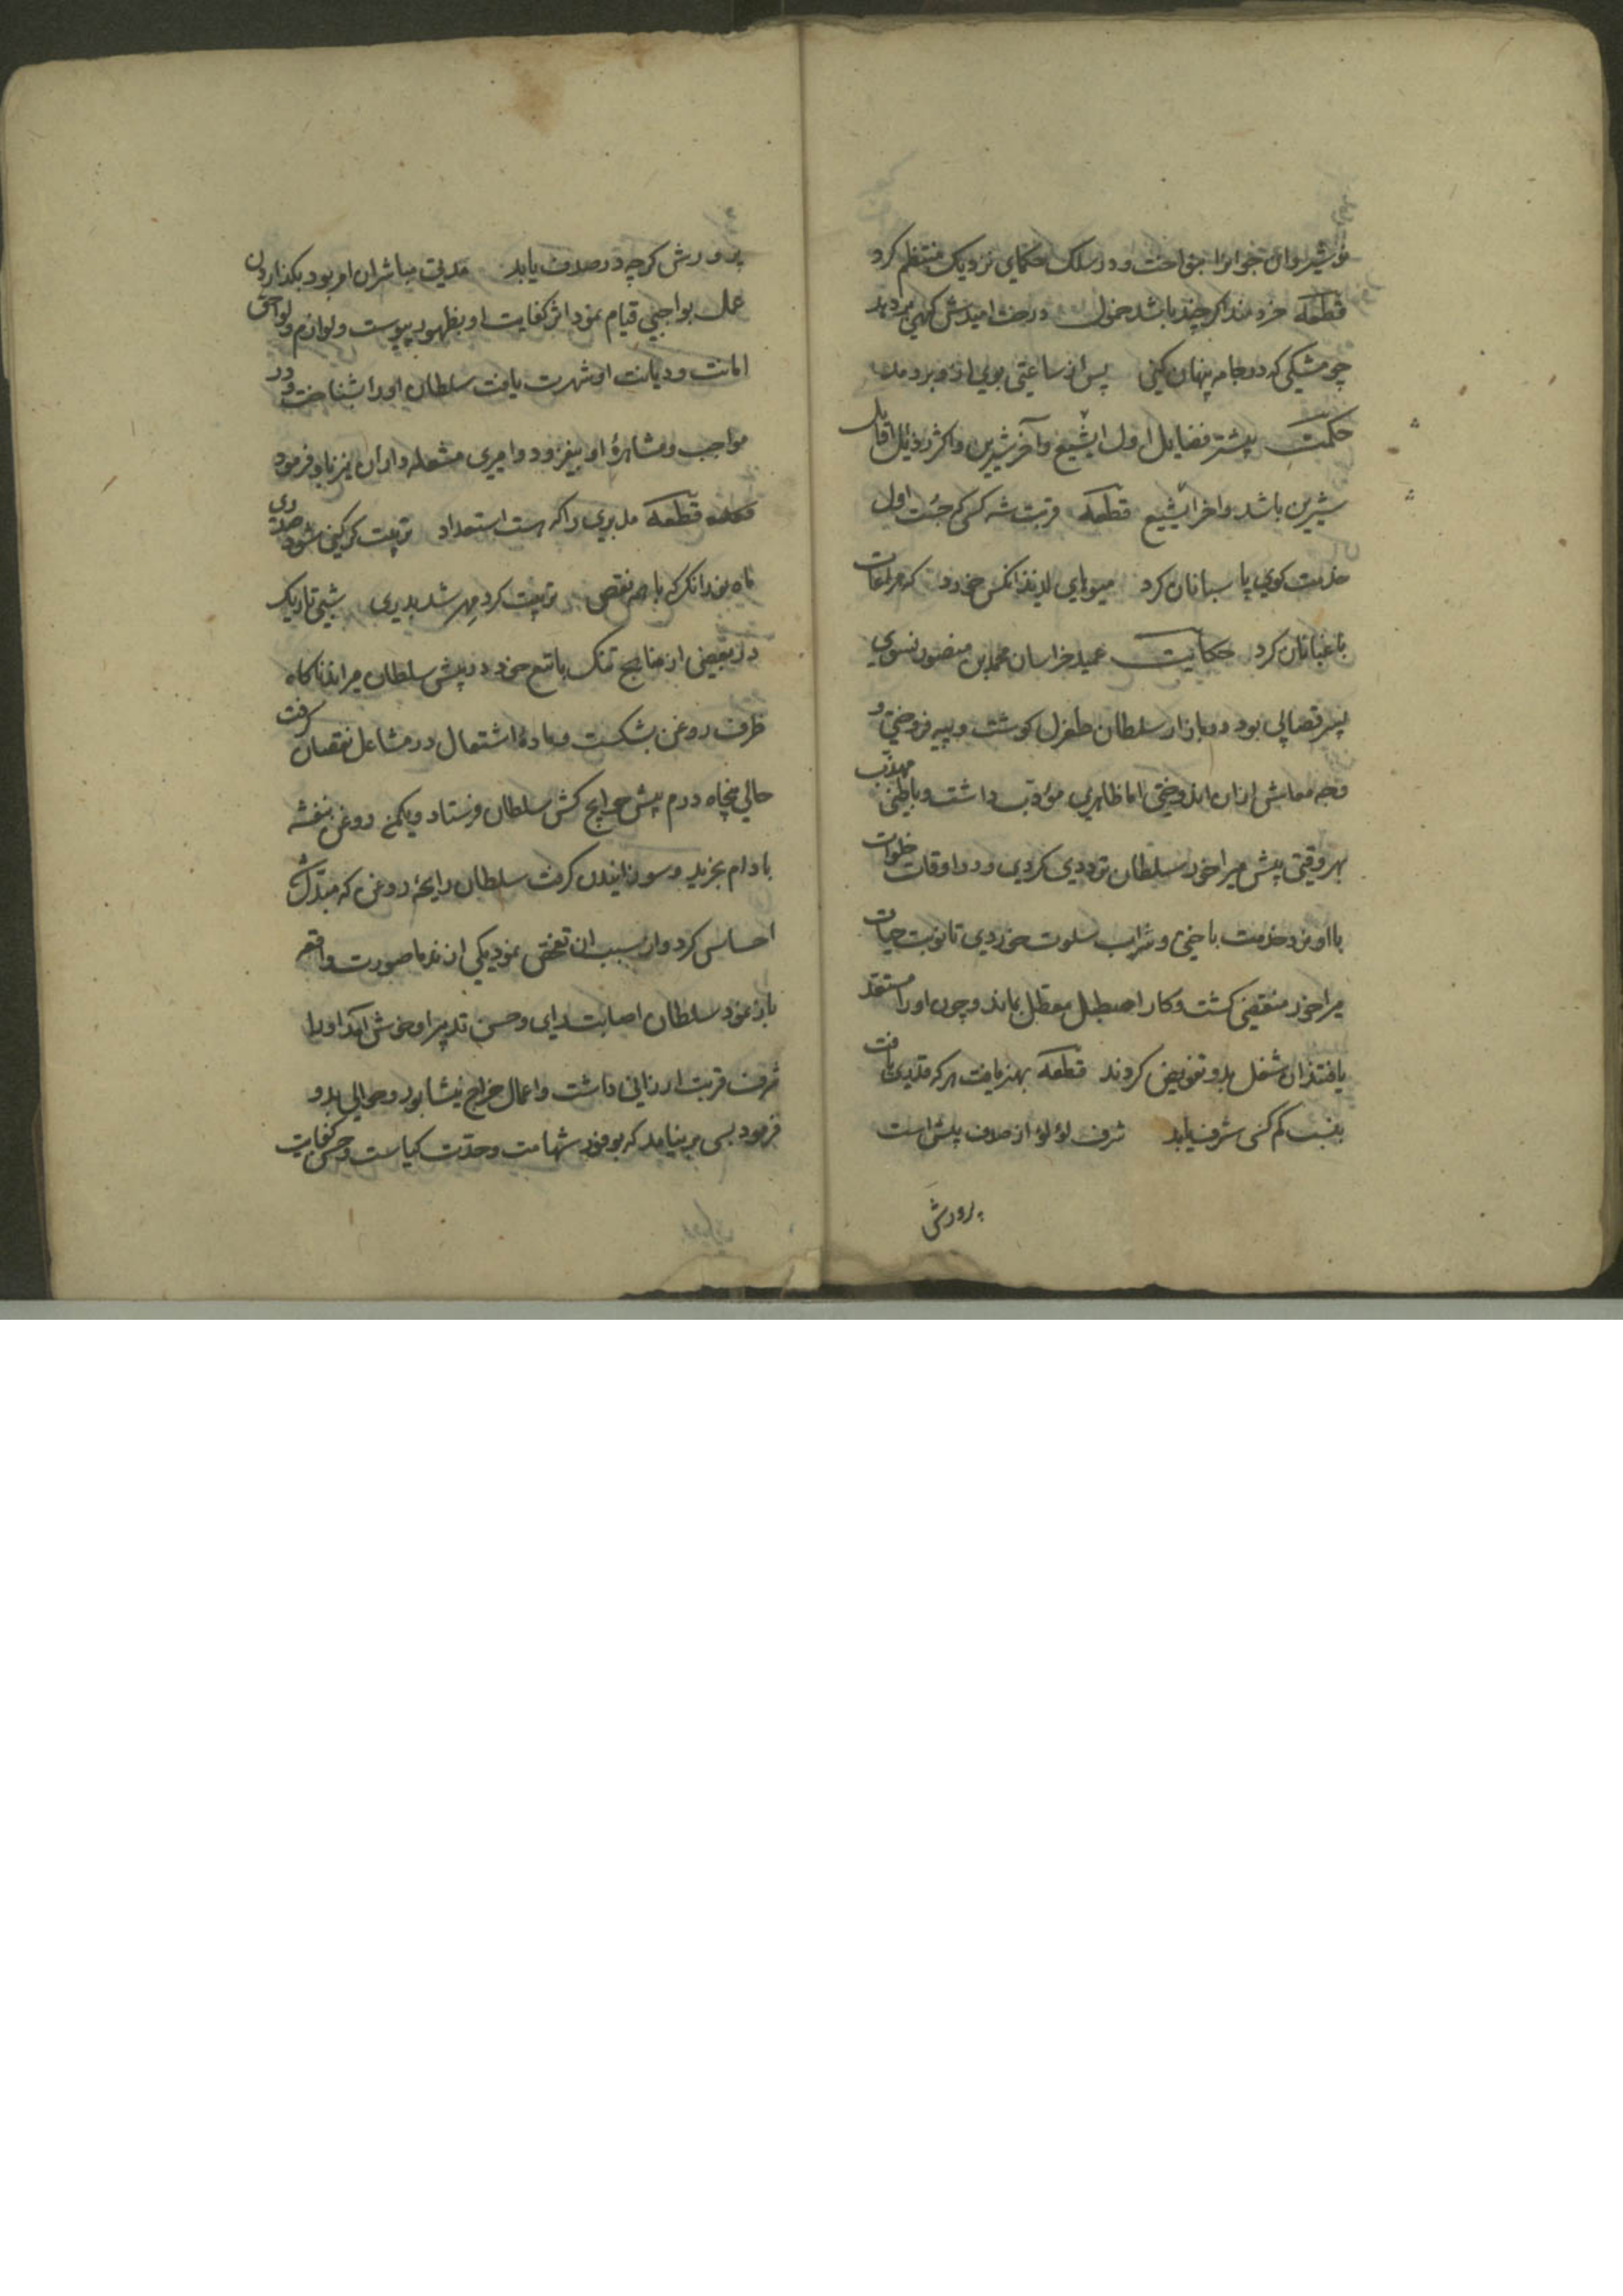 نوشیروان جوانرا بنواخت و در سلک حکمای نزدیک منتظم کرد
قطعه خردمند اکر چند باشد خمول درخت امیدش کهی بر دهد
چو مشکی که در جامه پنهان کنی پس از ساعتی بوی ازو بردمد
حکمت بیشتر فضایل اول ابشیع و آخر شیرین و اکثر رذائل اوایل
شیرین باشد و اخر ابشیع قطعه قربت شه کسی که جست اول
خدمت کوی پاسبانان کرد میوهای لذیذ انکس خورد که مراعات
باغبانان کرد حکایت عمید خراسان محمد بن منصور نسوی
پسر قصابی بود در بازار سلطان طغرل کوشت و پیه فروختی و
وجه معاش ازان اندوختی اما ظاهری مؤدب داشت و باطنی مهذب
بهر وقتی پیش میراخور سلطان ترددی کردی و در اوقات خلوات
با او نرد خدمت باختی و شراب سلوت خوردی تا نوبت حیات
میراخور منقضی کشت و کار اصطبل معطل بماند و چون او را مستعد
یافتند ان شغل بدو تفویض کردند قطعه بهنر یافت هر که قدری یافت
بنسب کم کسی شرف یابد شرف لؤلؤ از صدف پیش است
پرورش
پرورش کرچه در صدف یابد مدتی مباشران امر بود بکذاردن
عمل بواجبی قیام نمود اثر کفایت او بظهور پیوست و لوازم و لواحق
امانت و دیانت او شهرت یافت سلطان او را بشناخت و در
مواجب و مشاهرهٔ او بیفزود و امیری مشعله داران نیز باو فرمود
قطعه مدبری را که هست استعداد تربیت کر کنی شود صدری
ماه نو دانک با همه نقص تربیت کرد مهر شد بدری شبی تاریک
در بعضی از مناهج تنک با تبع خود در پیش سلطان میراند ناکاه
ظرف روغن بشکست و مادهٔ اشتعال در مشاعل نقصان کرفت
حالی پنجاه درم پیش حوایج کش سلطان فرستاد و یکمن روغن بنفشه
بادام بخرید و سوزانیدن کرفت سلطان رایحهٔ روغن که مبدل شد
احساس کرد و از سبب ان تفحص نمود یکی از ندما صورت واقعه
باز نمود سلطان اصابت رای و حسن تدبیر او خوش امد او را
شرف قربت ارزانی داشت و اعمال خراج نیشابور و حوالی بدو
فرمود بسی برنیامد که بوفور شهامت و حدت کیاست و حسن کفایت